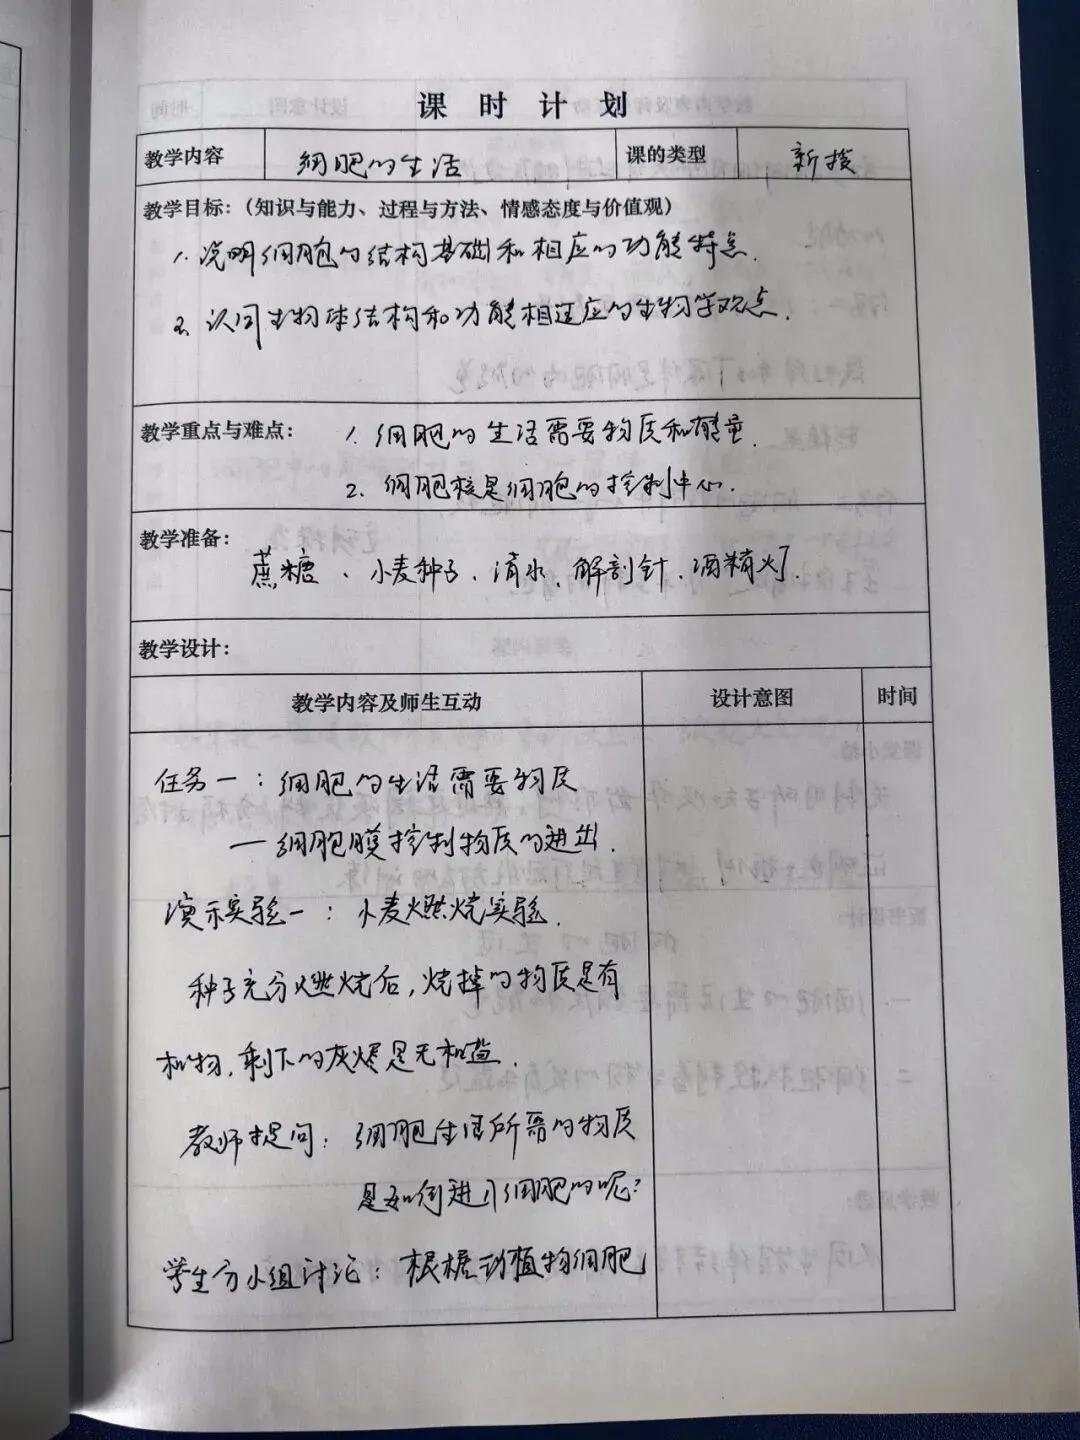 课时计划
教学内容 细胞的生活 课的类型 新授
教学目标：（知识与能力、过程与方法、情感态度与价值观）
1. 说明细胞的结构基础和相应的功能特点.
2. 认同生物体结构和功能相适应的生物学观点.
教学重点与难点： 1. 细胞的生活需要物质和能量.
2. 细胞核是细胞的控制中心.
教学准备：
蔗糖、小麦种子、清水、解剖针、酒精灯.
教学设计：
教学内容及师生互动 设计意图 时间
任务一：细胞的生活需要物质
— 细胞膜控制物质的进出.
演示实验一：小麦燃烧实验.
种子充分燃烧后，烧掉的物质是有
机物，剩下的灰烬是无机盐.
教师提问：细胞生活所需的物质
是如何进入细胞的呢？
学生分小组讨论：根据动植物细胞